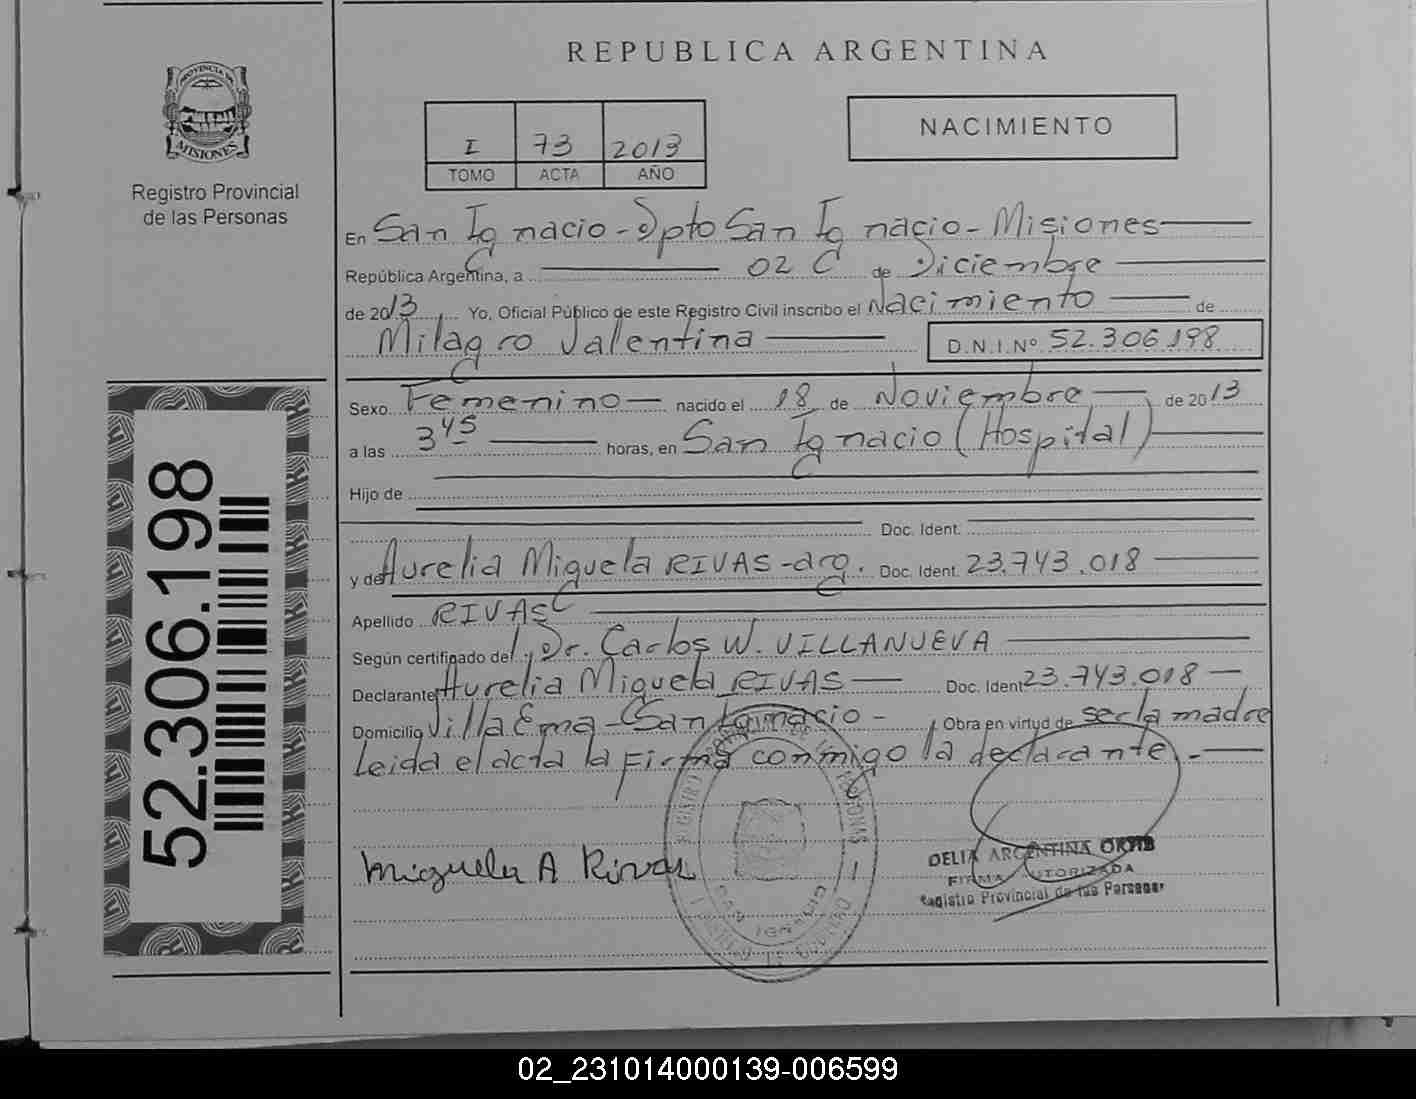 REPUBLICA ARGENTINA
PROVINCIA DE
MISIONES
Registro Provincial
de las Personas
I 73 2013
TOMO ACTA AÑO
NACIMIENTO
En San Ignacio - Dpto San Ignacio - Misiones
República Argentina, a 02 de Diciembre
de 2013 Yo, Oficial Público de este Registro Civil inscribo el Nacimiento de
Milagro Valentina D.N.I.Nº 52.306.198
Sexo Femenino nacido el 18 de Noviembre de 2013
a las 3 45 horas, en San Ignacio (Hospital)
Hijo de
Doc. Ident.
y de Aurelia Miguela RIVAS - arg. Doc. Ident. 23.743.018
Apellido RIVAS
Según certificado del Dr. Carlos W. VILLANUEVA
Declarante Aurelia Miguela RIVAS Doc. Ident 23.743.018
Domicilio Villa Ema - San Ignacio - Obra en virtud de ser la madre
Leida el acta la firma conmigo la declarante.-
Miguela A Rivas
SAN IGNACIO
DELIA ARGENTINA
FIRMA AUTORIZADA
Registro Provincial de las Personas
52.306.198
02_231014000139-006599